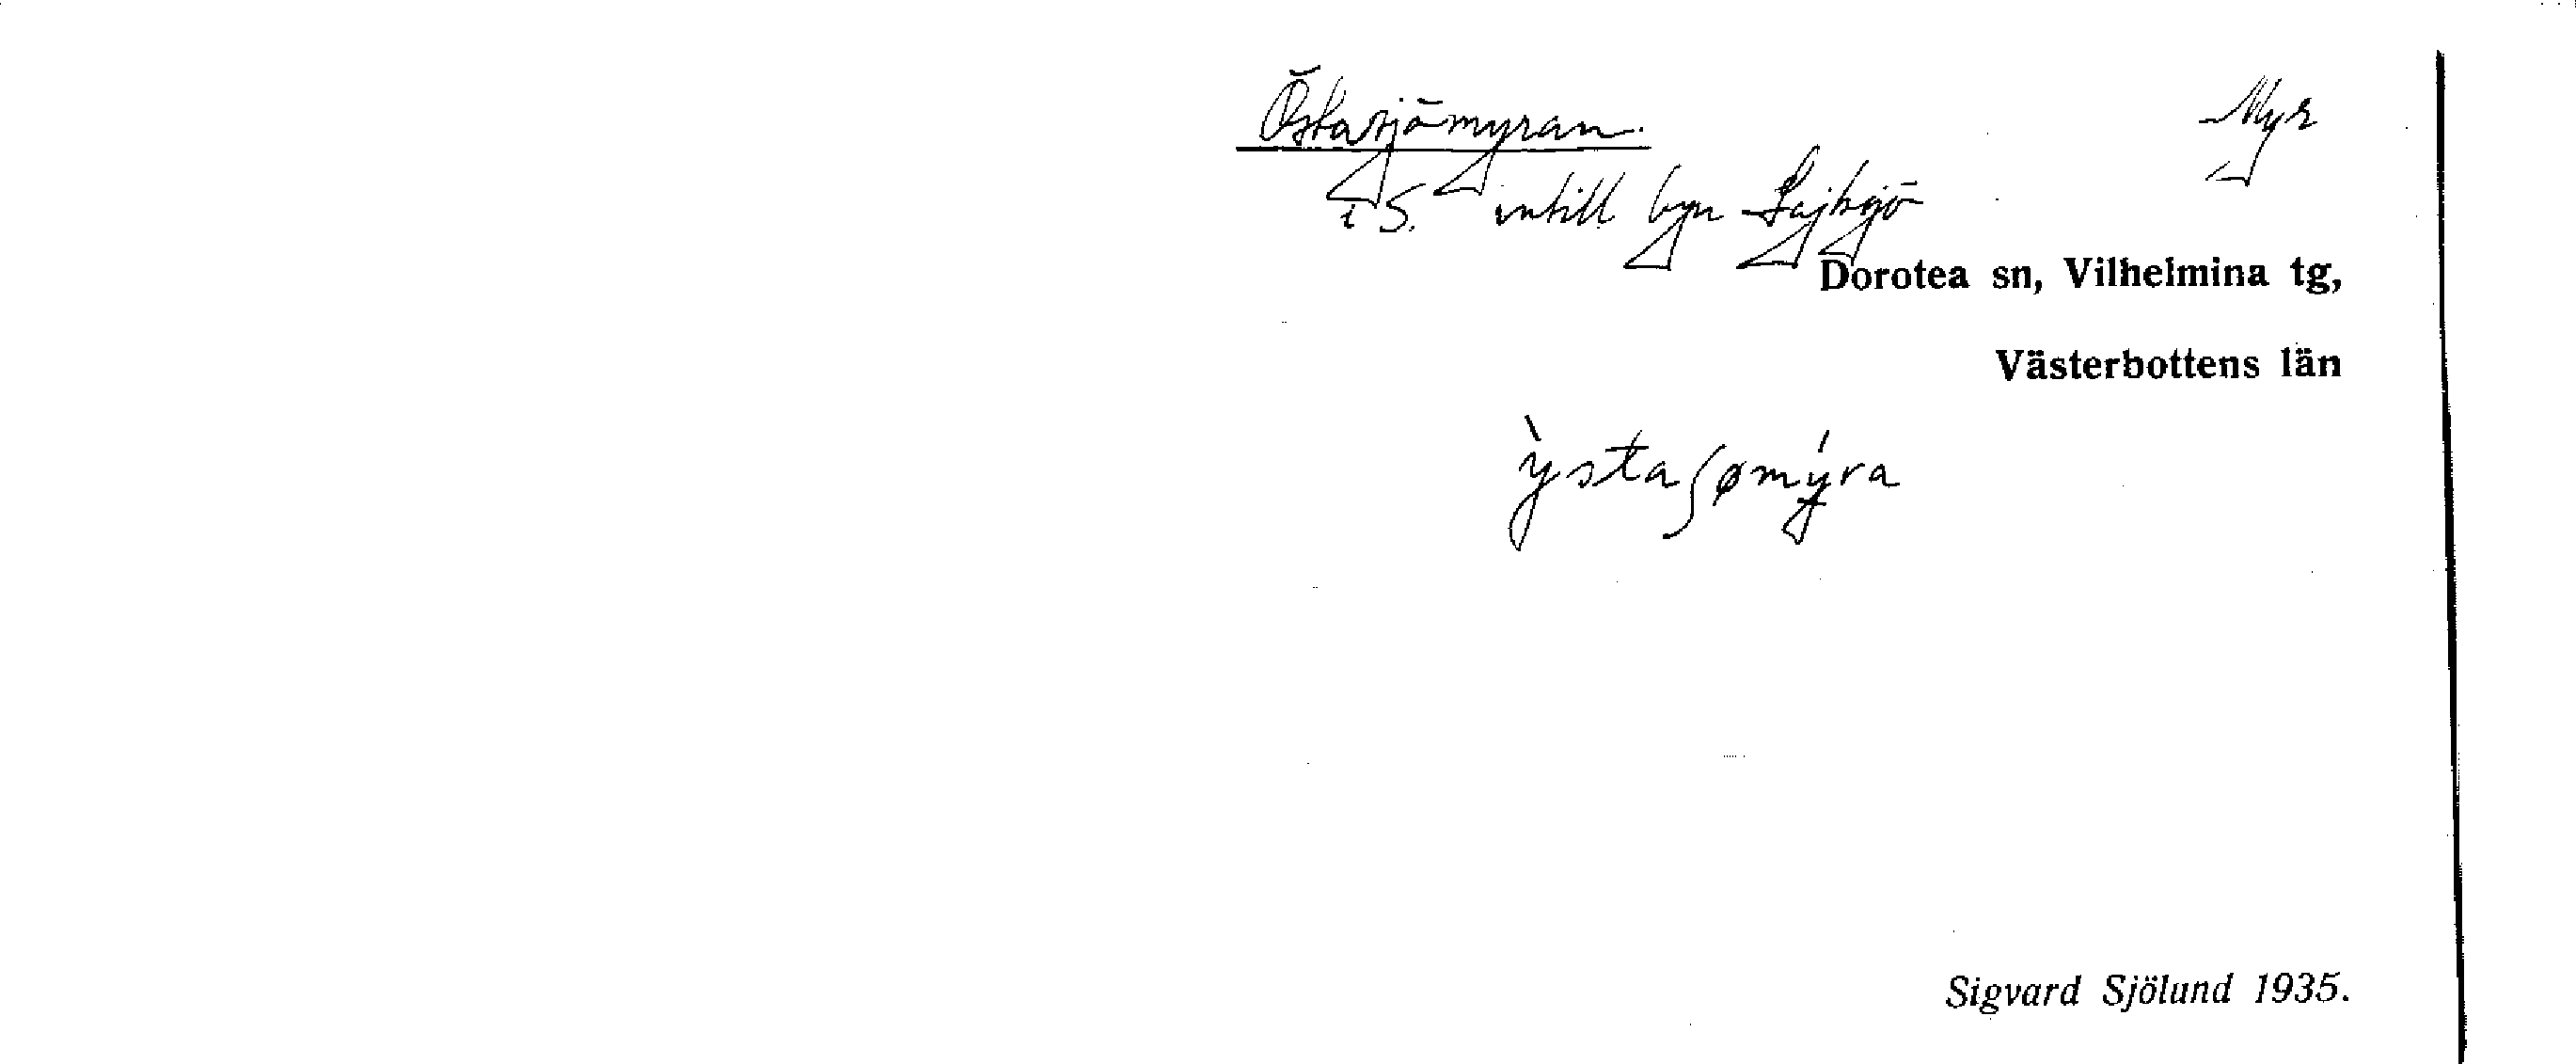 Östasjömyran. Myr
i S. intill byn Lajksjö
Dorotea sn, Vilhelmina tg,
Västerbottens län
ỳstaʃømýra
Sigvard Sjölund 1935.